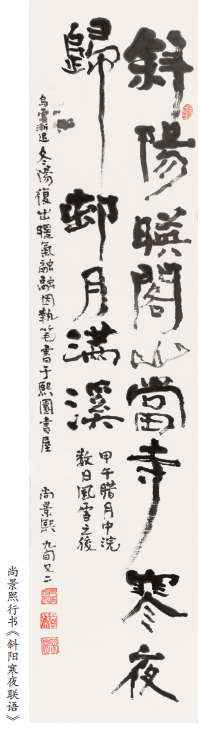 斜陽暎閣山當寺寒夜
歸邨月滿溪
甲午腊月中浣
数日風雪之後
烏雲漸退冬陽復出暖氣融融因執笔書于熙園書屋
尚景熙 九旬又二
尚景熙行书《斜阳寒夜联语》